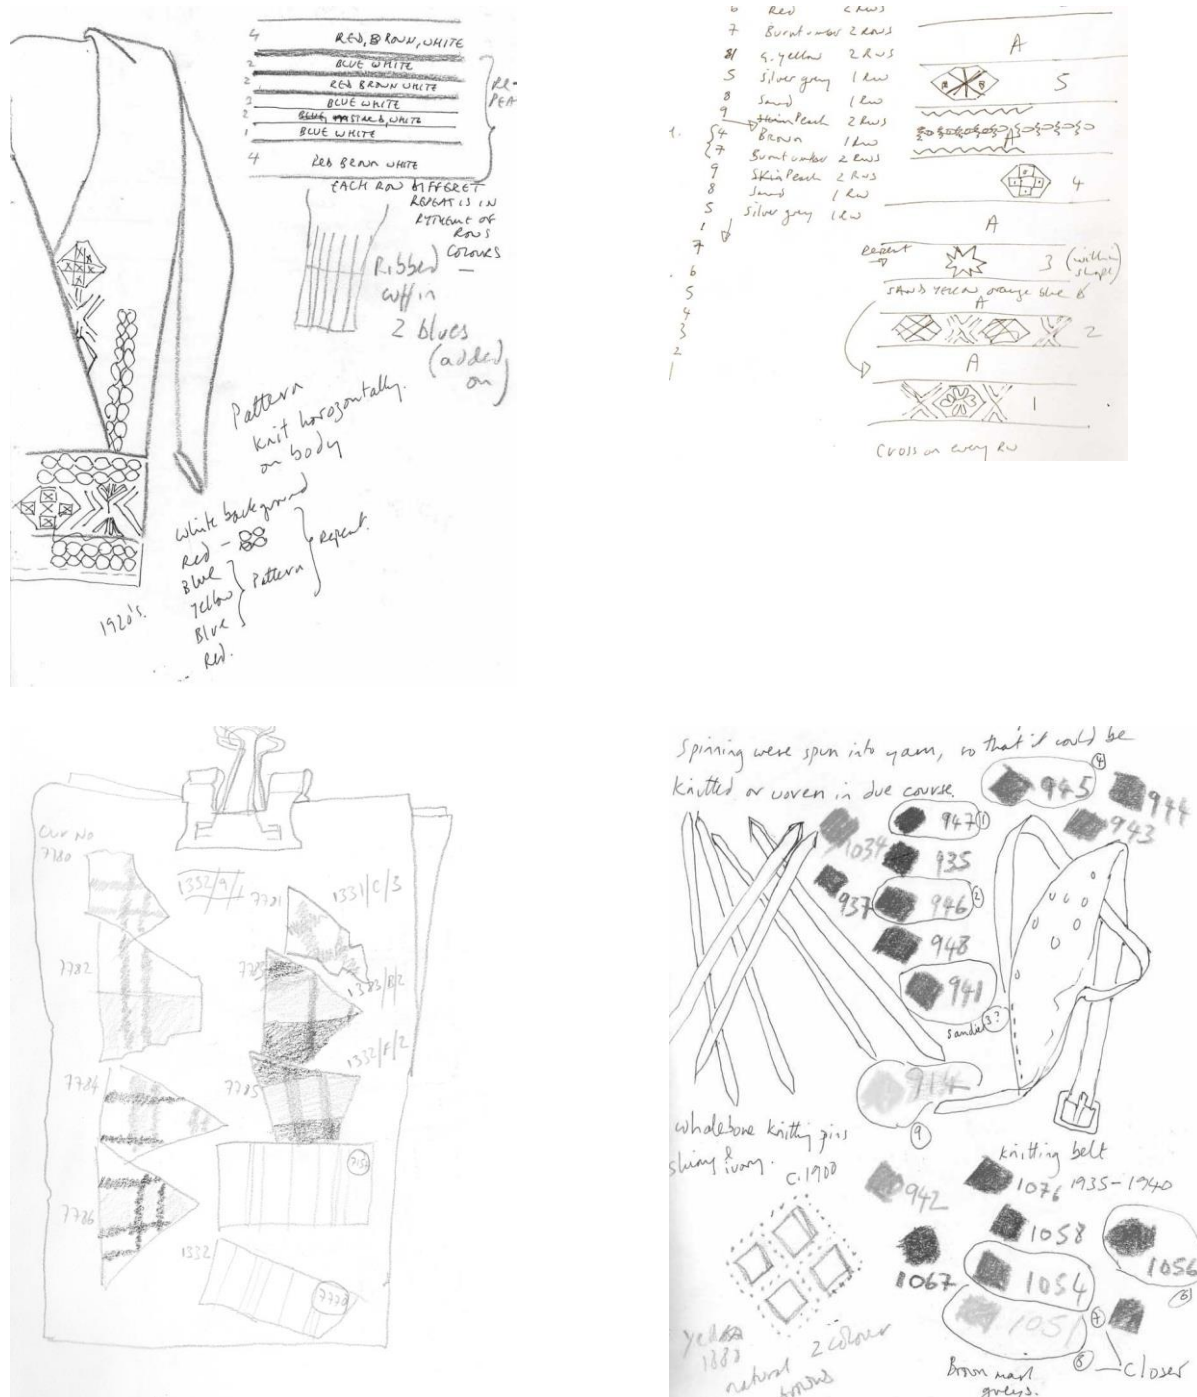 4 RED, BROWN, WHITE
2 BLUE WHITE
2 RED BROWN WHITE
BLUE WHITE
2 BLUE, WHITE
1 BLUE WHITE
4 RED BROWN WHITE
RE-
PEA
EACH ROW DIFFERET
REPEAT IS IN
RYTHEME OF
ROWS
COLOURS
Ribbed
cuff in
2 blues
(added
on)
Pattern
knit horozontally.
on body
white background
Red -
Blue
Yellow
Blue
Red.
Pattern
Repeat.
1920's.
6 Red 2 Rws
7 Burnt umber 2 Rows
8 G. yellow 2 Rws
5 Silver grey 1 Rw
8 Sand 1 Rw
9 Skin Peach 2 Rws
1. 4 Brown 1 Rw
7 Burnt umber 2 Rws
9 Skin Peach 2 Rws
8 Sand 1 Rw
5 Silver grey 1 Rw
1
7
6
5
4
3
2
1
A
5
A
4
A
Repeat
3 (within
shape)
SAND YELLOW orange blue B
A
2
A
1
Cross on every Rw
Our No
7780
1332/9/1
7781
1331/C/3
7782
1383/B/2
1332/F/2
7784
7785
7786
1332
7778
Spinning were spun into yarn, so that it could be
knitted or woven in due course.
945 4
944
943
947 1
1034
935
937
946 2
948
941
Sandier 3?
914
9
whalebone knitting pins
shiny & ivory.
c.1900
knitting belt
1935-1940
942
1076
1058
1056
6
1067
1054
7
1051
8
Closer
1880
natural 2 colour
browns
Brown
greens.